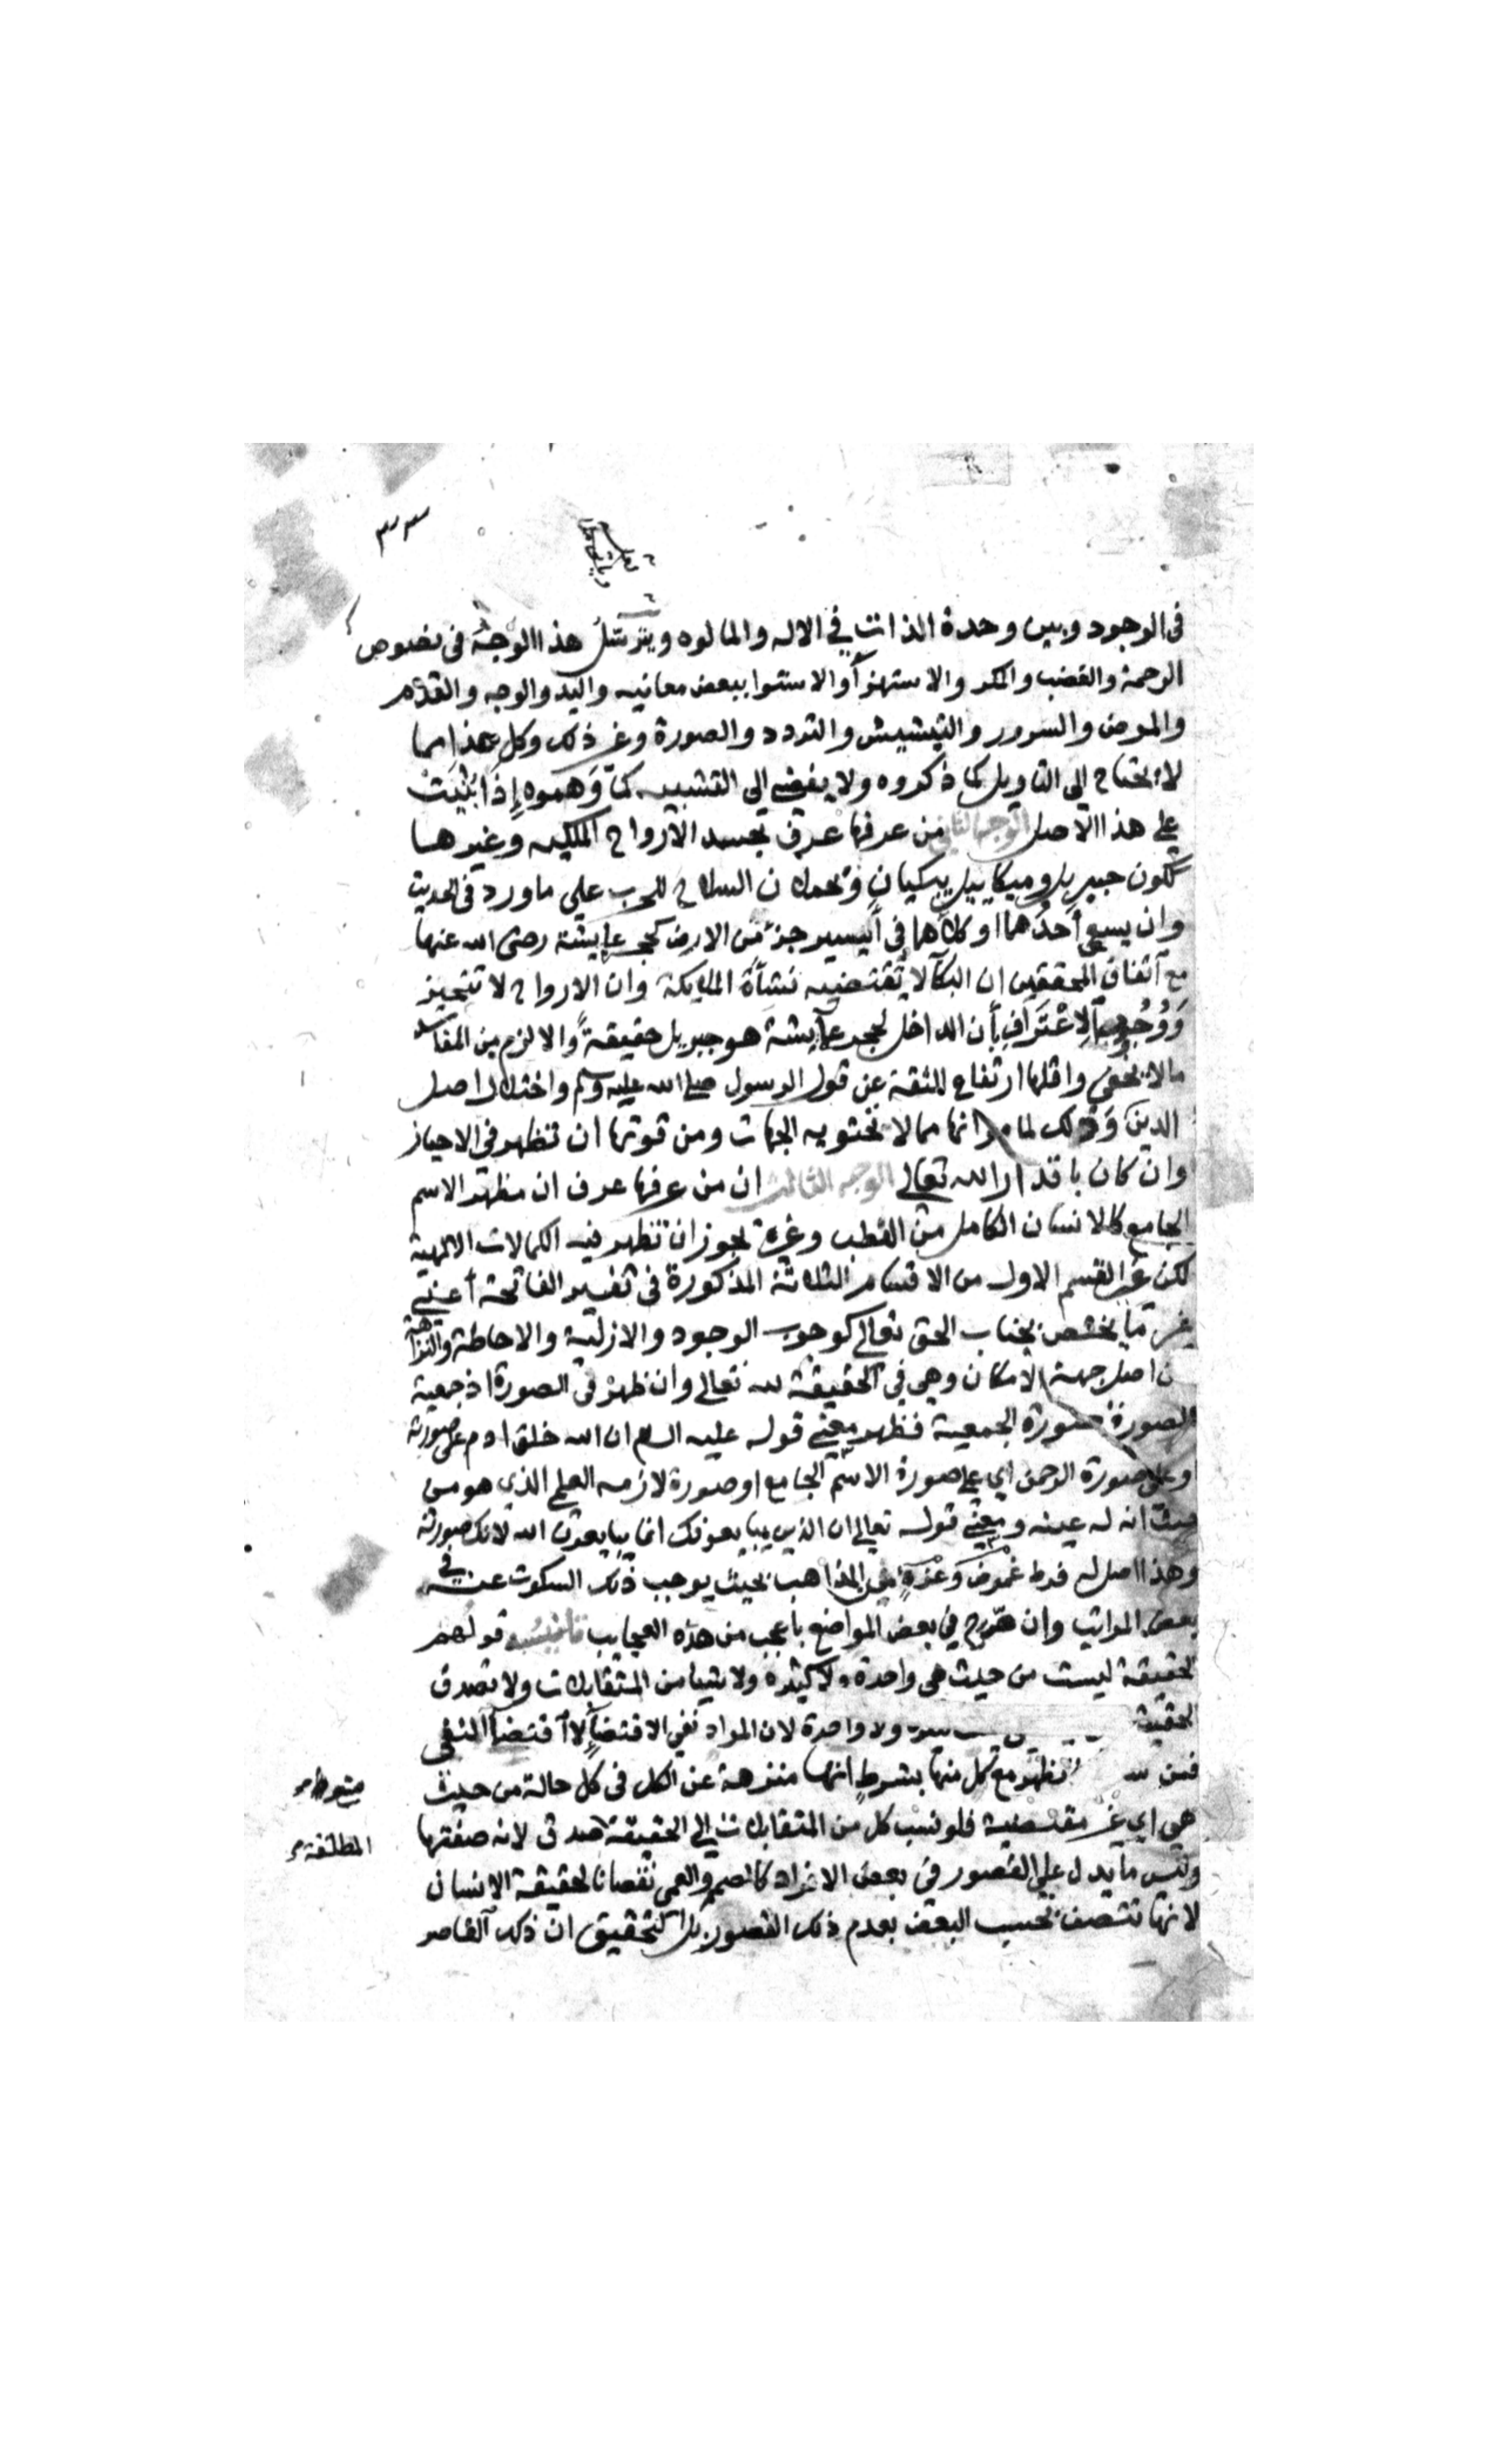 ٣٣
في الوجود وبين وحدة الذات في الاله والمالوه ويترسل هذا الوجه في نصوص
الرحمة والغضب والمكر والاستهزآ والاستوا ببعض معانيه واليد والوجه والقدم
والمرض والسرور والتبشبش والتردد والصورة وغير ذلك وكل هذا مما
لا يحتاج الى التاويل كما ذكروه ولا يفضي الى التشبيه كما وهموه إذا بنيت
على هذا الاصل الوجه الثاني من عرفها عرف تجسد الارواح الملكيه وغيرها
ككون جبريل وميكاييل يبكيان ويحملان السلاح للحرب على ما ورد في الحديث
وان يسع أحدهما او كلاهما في أيسر جزء من الارض كحجر عايشة رضى الله عنها
مع اتفاق المحققين ان البكآ لا تقتضيه نشأة الملايكة وان الارواح لا تتحيز
ووجوب الاعتراف بأن الداخل لحجر عآيشة هو جبريل حقيقةً والا لزم من المفاسد
مالا يخفى واقلها ارتفاع الثقة عن قول الرسول صلى الله عليه وسلم واختلال اصل
الدين وذلك لما مر انها مما لا تحتويه الجهات ومن قوتها ان تظهر في الاحياز
وان كان باقدار الله تعالى الوجه الثالث ان من عرفها عرف ان مظهر الاسم
الجامع كالانسان الكامل من القطب وغيره يجوز ان تظهر فيه الكمالات الالهية
لكن غير القسم الاول من الاقسام الثلاثة المذكورة في تفسير الفاتحة أعني
غير ما يختص بجناب الحق تعالى كوجوب الوجود والازلية والاحاطة والنزاهة
ن اصل جهة الامكان وهي في الحقيقة لله تعالى وان ظهر في الصورة اذ جمعية
الصورة صورة الجمعية فظهر معنى قوله عليه السلام ان الله خلق ادم على صورته
وعلى صورة الرحمن اي على صورة الاسم الجامع او صورة لازمه العلم الذي هو من
حيث انه له عينه ومعنى قوله تعالى ان الذين يبايعونك انما يبايعون الله لانك صورته
وهذا اصل له فرط غموض وعزة في المذاهب بحيث يوجب ذلك السكوت عنه في
بعض المراتب وان صرح في بعض المواضع باعجب من هذه العجايب قولهم
الحقيقة ليست من حيث هي واحدة ولا كثيرة ولا شيا من المتقابلات ولا تصدق
الحقيقة ولا واحدة لان المراد نفي الاقتضآ لا اقتضآ النفي
فمن تظهر مع كل منها بشرط انها منزهة عن الكل في كل حالة من حيث
هي اي غير مقتضية فلو نسب كل من المتقابلات الى الحقيقة صدق لانه صفتها
المطلقة
وليس ما يدل على القصور في بعض الافراد كالصم والعمى نقصانا لحقيقة الانسان
لانها تتصف بحسب البعض بعدم ذلك القصور بل التحقيق ان ذلك القاصر